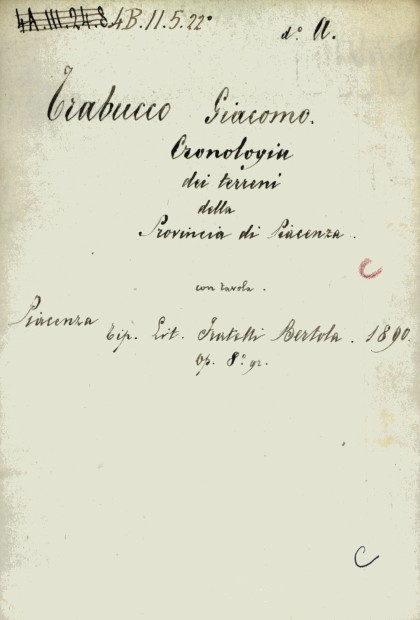 4A.III.24.8 4B.11.5.22°
d.° A.
Trabucco Giacomo.
Cronologia
dei terreni
della
Provincia di Piacenza.
con tavola.
Piacenza
Tip. Lit. Fratelli Bertola. 1890.
Op. 8.° gr.
C
C